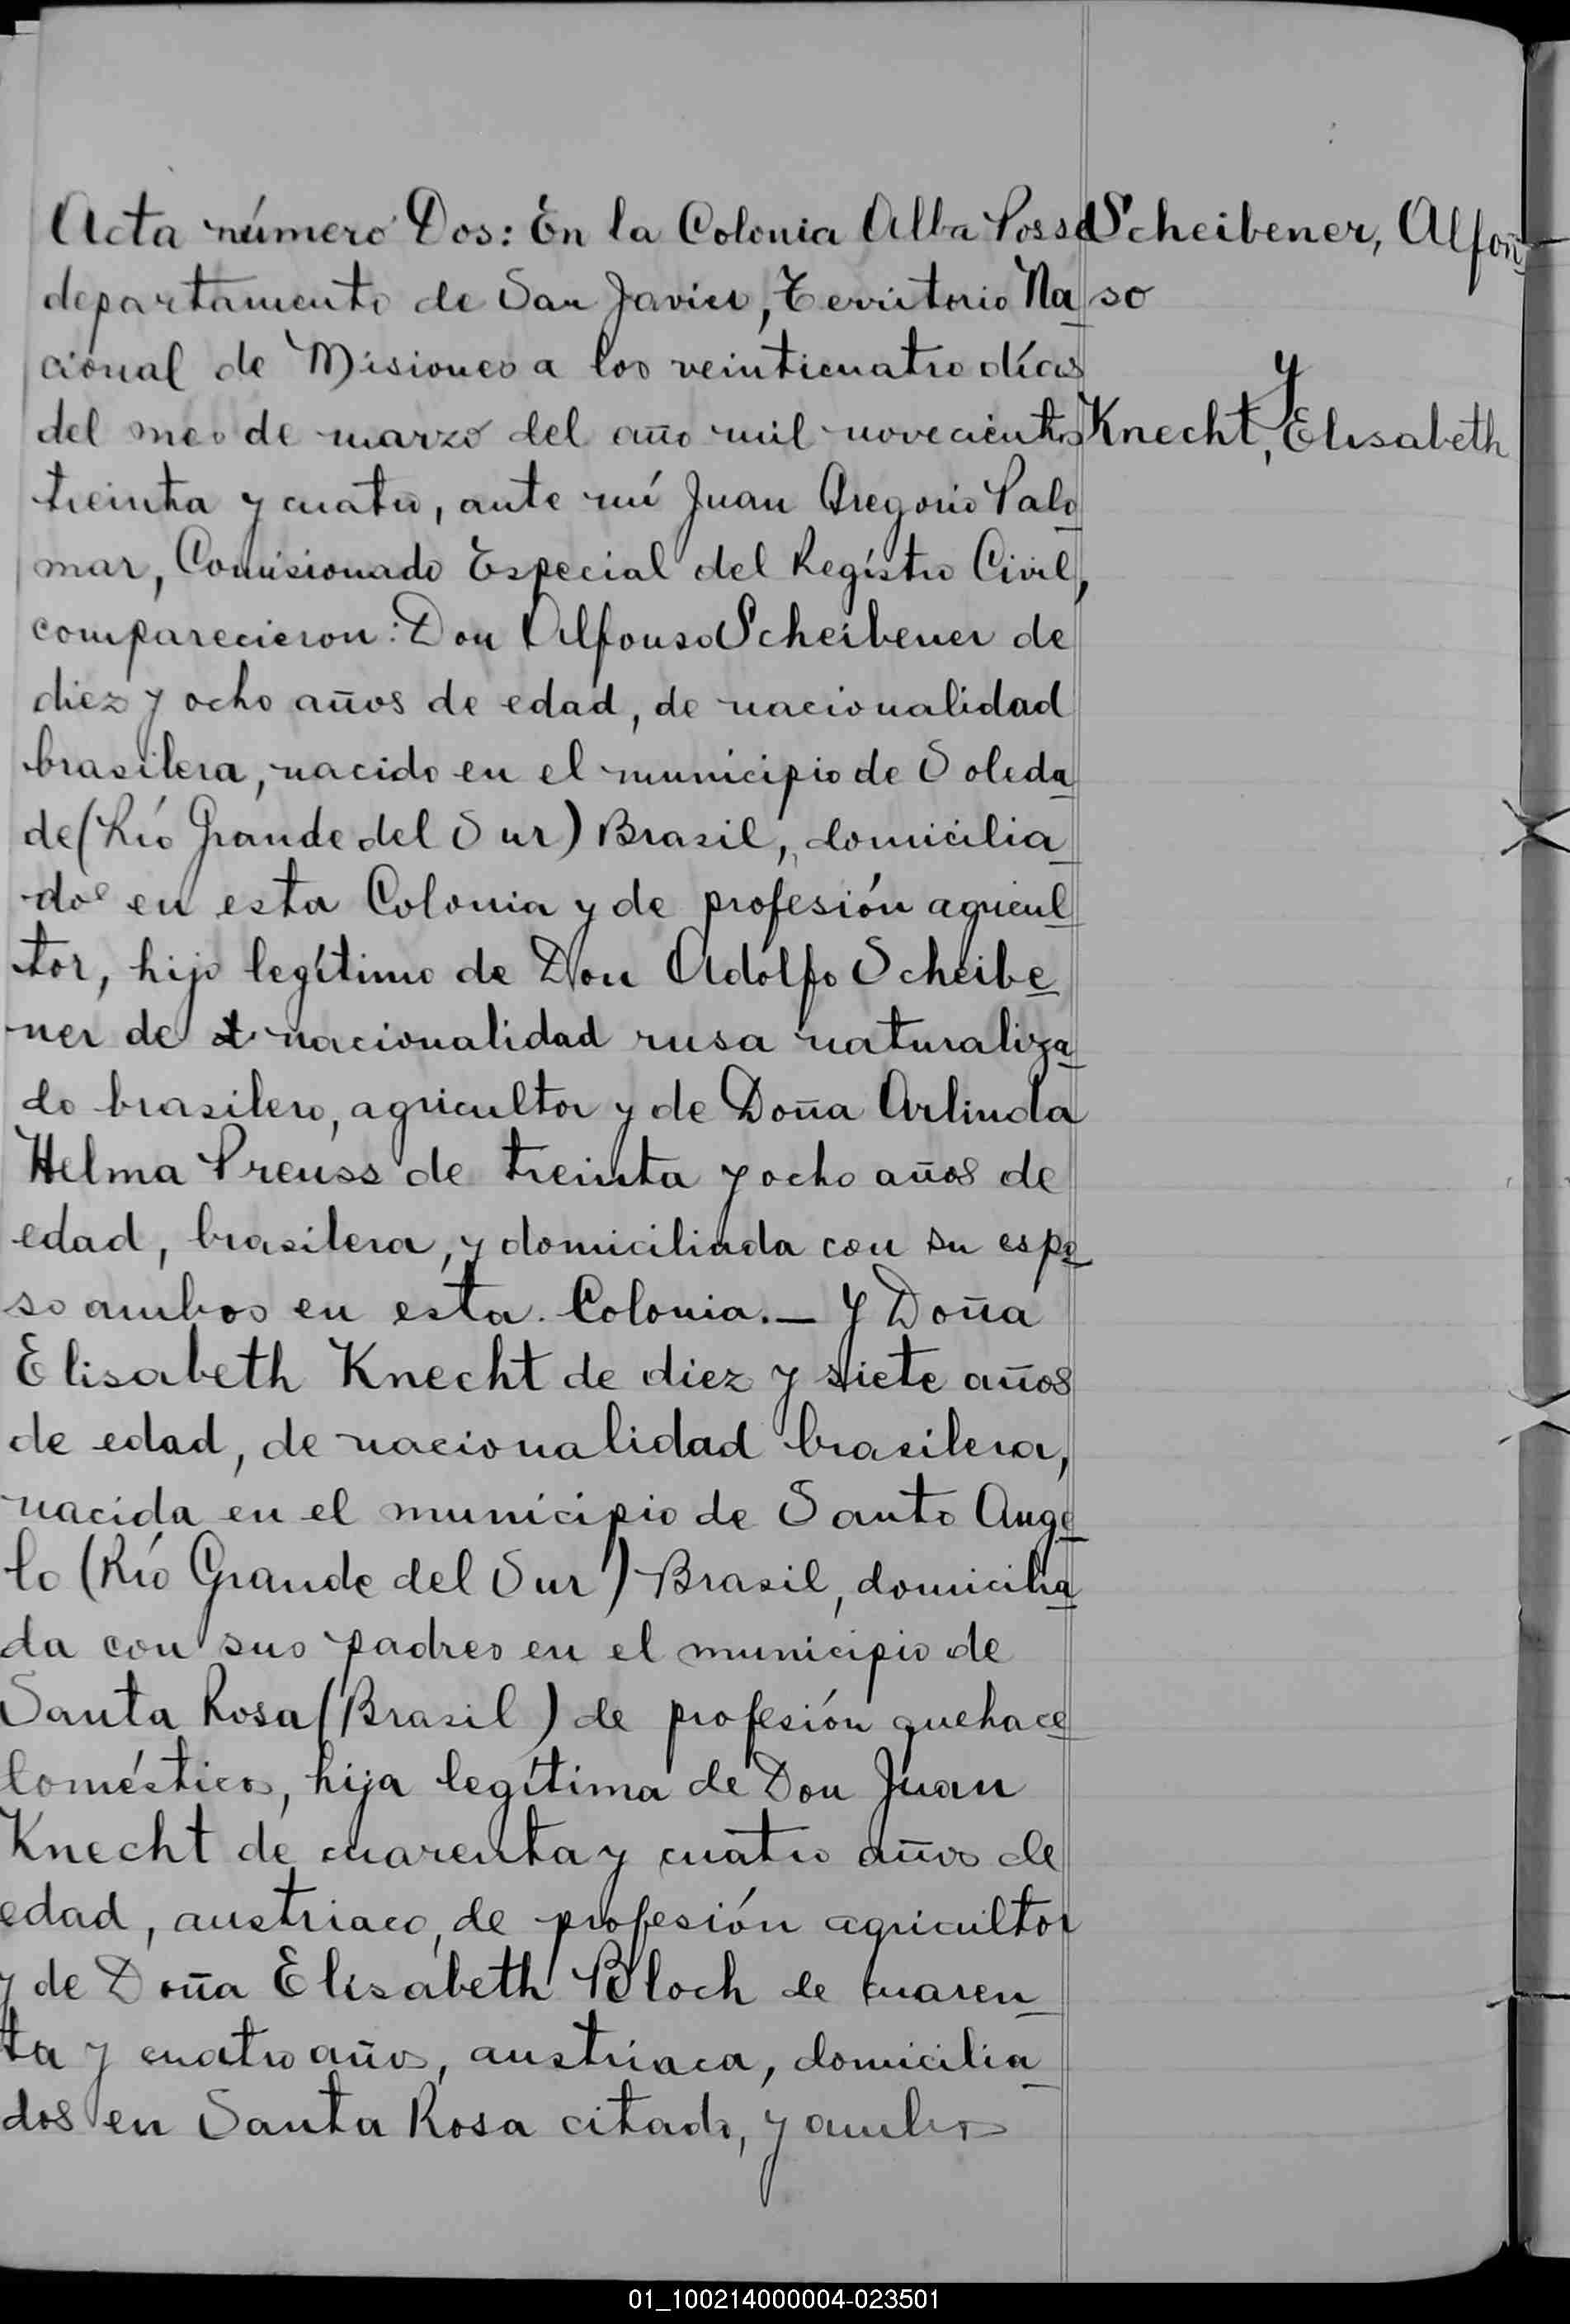 Acta número Dos: En la Colonia Alba Posse
departamento de San Javier, Territorio Na
cional de Misiones a los veinticuatro días
del mes de marzo del año mil novecientos
treinta y cuatro, ante mí Juan Gregorio Palo
mar, Comisionado Especial del Regístro Civil,
comparecieron: Don Alfonso Scheibener de
diez y ocho años de edad, de nacionalidad
brasilera, nacido en el municipio de Soleda
de (Río Grande del Sur) Brasil, domicilia
do en esta Colonia y de profesión agricul
tor, hijo legítimo de Don Adolfo Scheibe
ner de nacionalidad rusa naturaliza
do brasilero, agricultor y de Doña Arlinda
Helma Preuss de treinta y ocho años de
edad, brasilera, y domiciliada con su espo
so ambos en esta Colonia.— Y Doña
Elisabeth Knecht de diez y siete años
de edad, de nacionalidad brasilera,
nacida en el municipio de Santo Ange
lo (Río Grande del Sur) Brasil, domicilia
da con sus padres en el municipio de
Santa Rosa (Brasil) de profesión quehace
doméstico, hija legítima de Don Juan
Knecht de cuarenta y cuatro años de
edad, austriaco, de profesión agricultor
y de Doña Elisabeth Bloch de cuaren
ta y cuatro años, austríaca, domicilia
dos en Santa Rosa citado, y ambos
Scheibener, Alfon
so
y
Knecht, Elisabeth
01_100214000004-023501